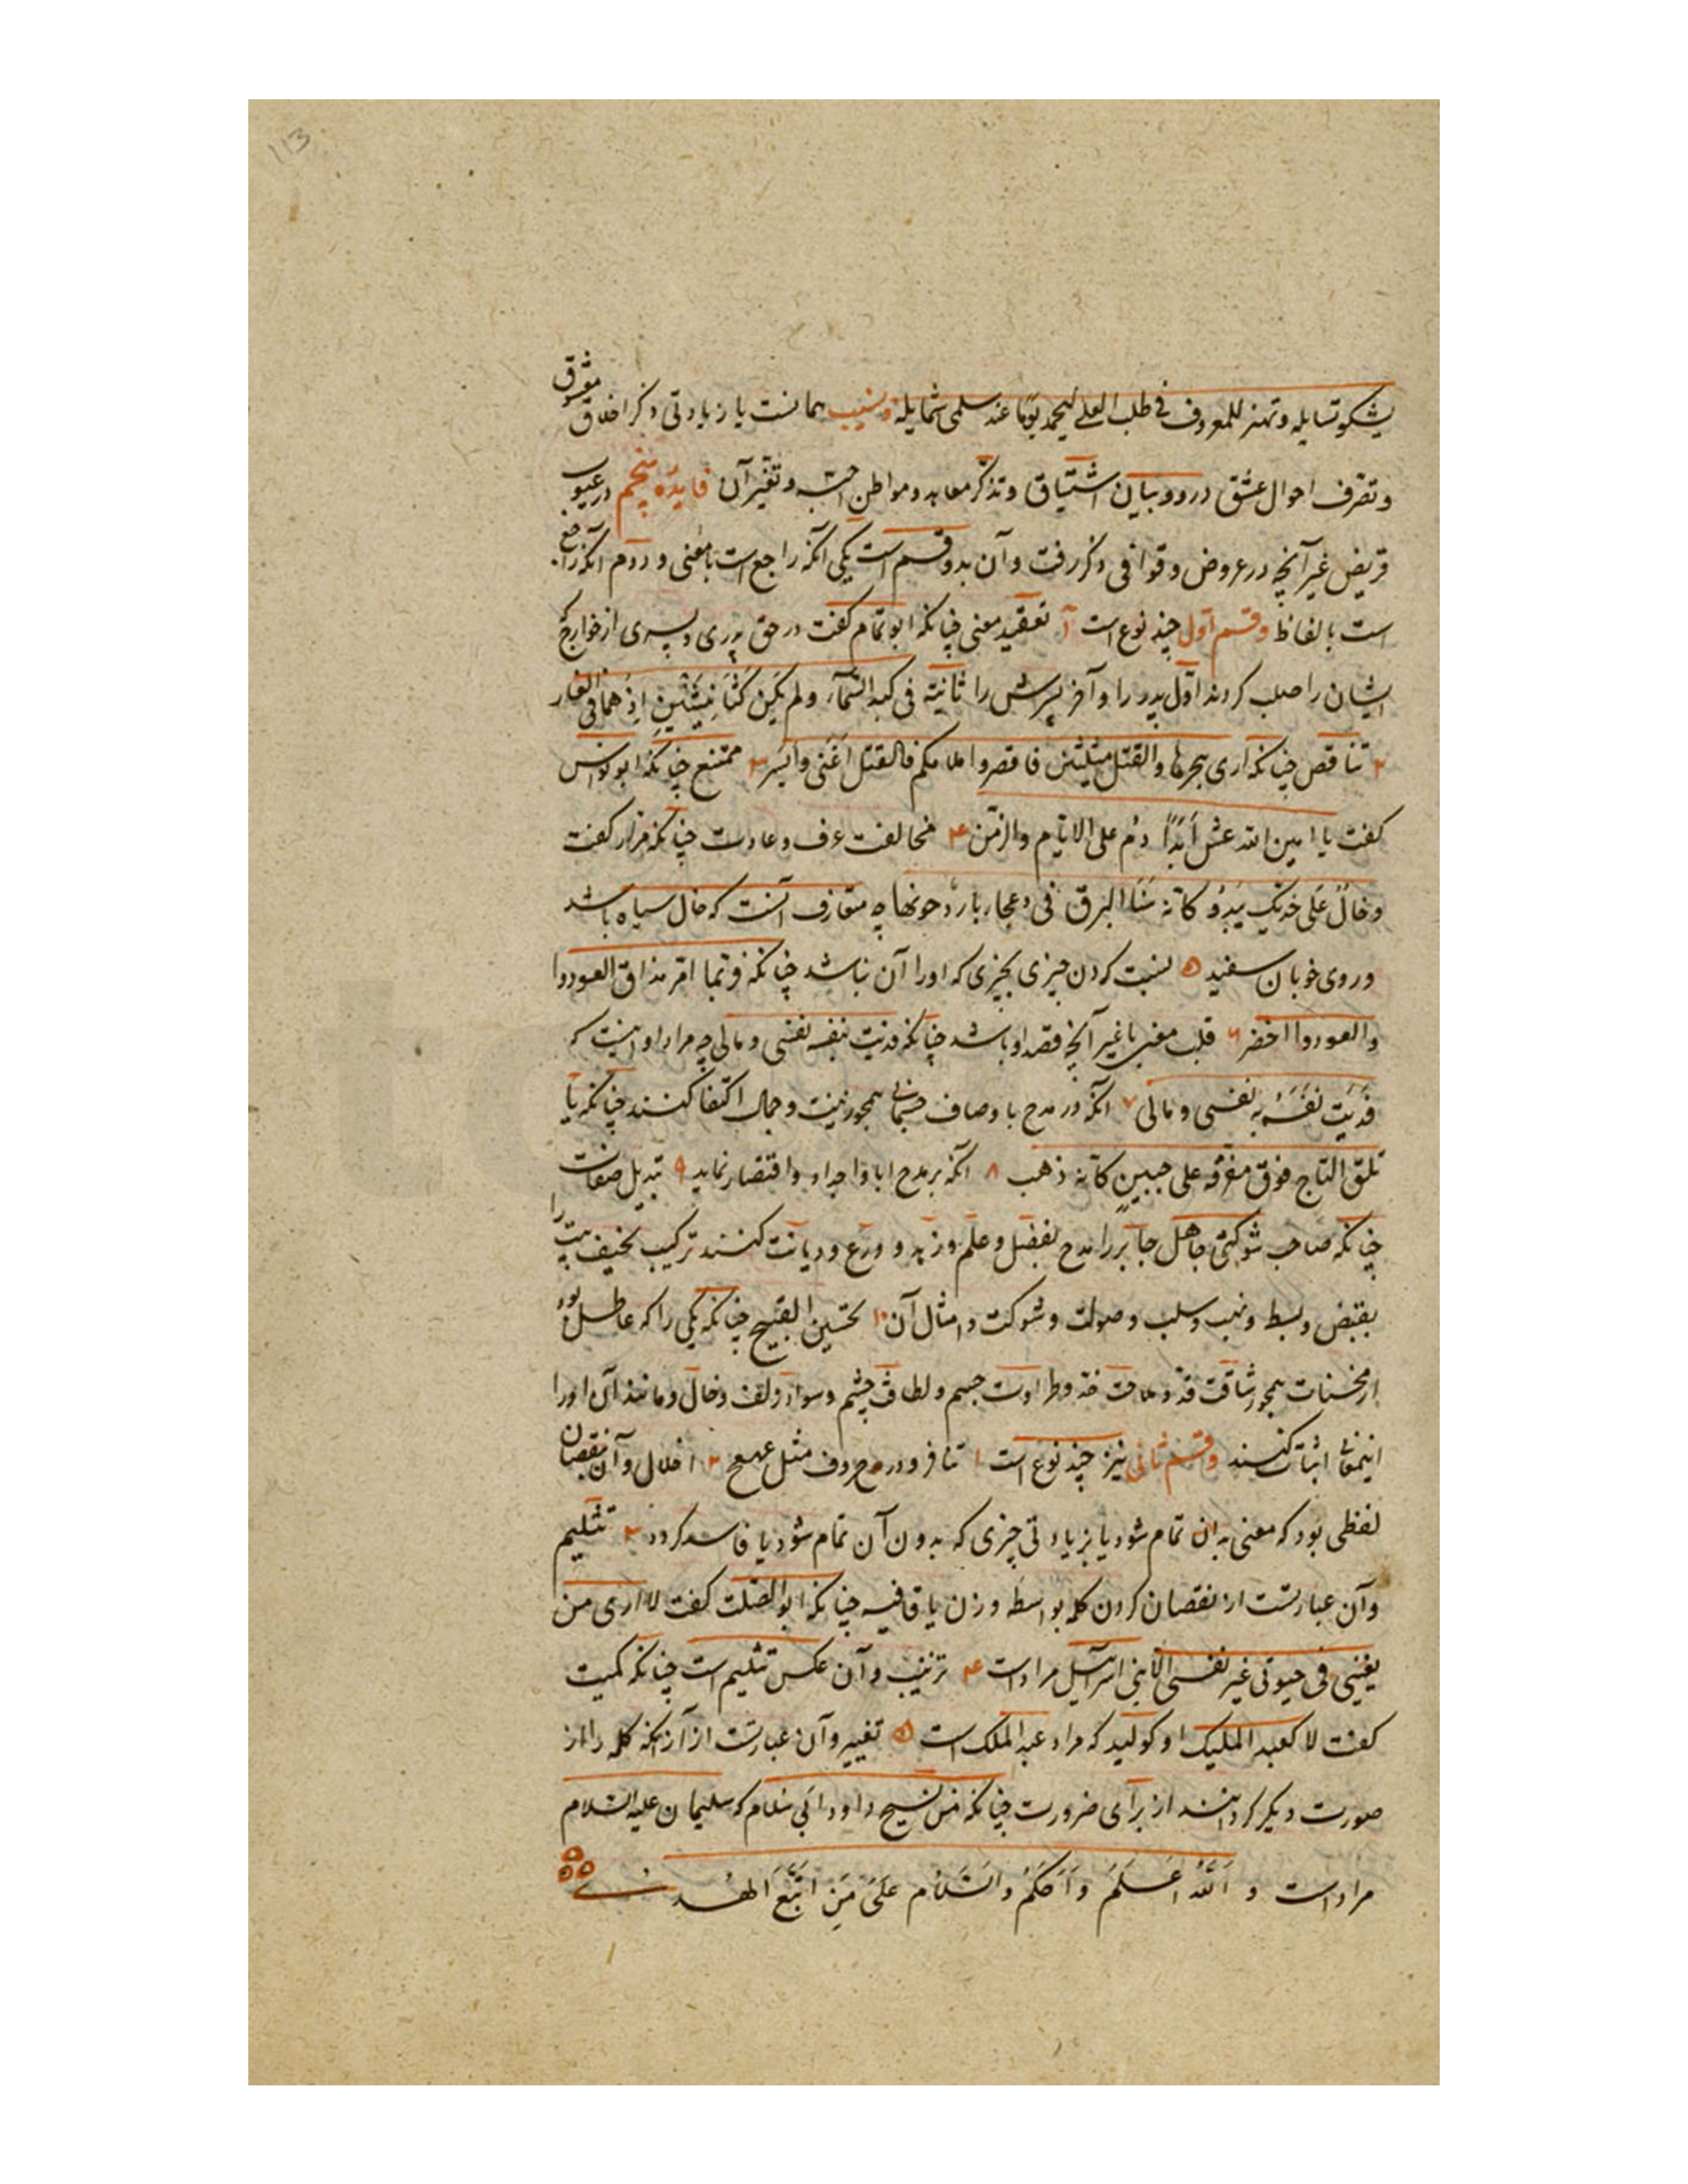 113
یشکو تسایله وتهتز للمعروف فی طلب العلے لیحمد یومًا عند سلمی شمایله ونسیب همانست یا زیادتی ذکر اخلاق معشوق
وتصرف احوال عشق درو و بیان اشتیاق وتذکر معاهد ومواطن احبته وتغیر آن فایده پنجم در عیوب
قریض غیر آنچه در عروض وقوافی ذکر رفت وآن بدو قسم است یکی آنکه راجع است با معنی و دوم آنکه راجع
است بالفاظ وقسم اول چند نوع است ۱ تعقید معنی چنانکه ابو تمام گفت در حق پدری وپسری از خوارج که
ایشان را صلب کردند اول پدر را وآخر پسرش را ثانیه فی کبد السمآء ولم یکن کثانی اثنین اذ هما فی الغار
۲ تناقض چنانکه اری هجرها والقتل مثلین فاقصروا ملامکم فالقتل اغنی وایسر ۳ ممتنع چنانکه ابو نواس
گفت یا امین الله عش ابدًا دم علی الایام والزمن ۴ مخالفت عرف وعادت چنانکه مرار گفت
وخال علی خدیک یبدو کانه سنا البرق فی دعجاء باد دجونها چه متعارف آنست که خال سیاه باشد
وروی خوبان سفید ۵ نسبت کردن چیزی بچیزی که او را آن نباشد چنانکه فربما امر مذاق العود وا
والعود وا اخضر ۶ قلب معنی با غیر آنچه قصد او باشد چنانکه فدیت بنفسه نفسی ومالی چه مراد او اینست که
فدیت نفسه به نفسی ومالی ۷ آنکه در مدح باوصاف جسمانی همچو زینت وجمال اکتفا کنند چنانکه یا
تلق التاج فوق مفرقه علی جبین کانه ذهب ۸ آنکه بر مدح ابا واجداد واقتصار نماید ۹ تبدیل صفات
چنانکه صاحب شوکتی جاهل جابر را مدح بفضل وعلم وزهد و ورع ودیانت کنند ترکیب نحیف بیت را
بقبض وبسط ونهب وسلب وصولت وشوکت وامثال آن ۱۰ تحسین القبیح چنانکه یکی را که عاطل بود
از محسنات همچو رشاقت قد وملاحت خد وطراوت جسم ولطافت چشم وسواد زلف وخال ومانند آن او را
اینمعانی اثبات کنند وقسم ثانی نیز چند نوع است ۱ تنافر و در مدح حروف مثل عهعح ۲ اخلال وآن نقصان
لفظی بود که معنی بدان تمام شود یا بزیادتی چیزی که بدون آن تمام شود یا فاسد گردد ۳ تثلیم
وآن عبارتست از نقصان کردن کلمه بواسطه وزن یا قافیه چنانکه ابو الصلت گفت لا اری من
یغنینی فی حیوتی غیر نفسی الا بنی اسرآیل مراد است ۴ تزنیب وآن عکس تثلیم است چنانکه کمیت
گفت لا کعبد الملیک او کولید که مراد عبد الملک است ۵ تغییر وآن عبارتست از آنکه کلمه را از
صورت دیگر گردانند از برای ضرورت چنانکه من نسیج داود ابی سلام که سلیمان علیه السلام
مراد است و الله اعلم واحکم والسلام علی من اتبع الهدی